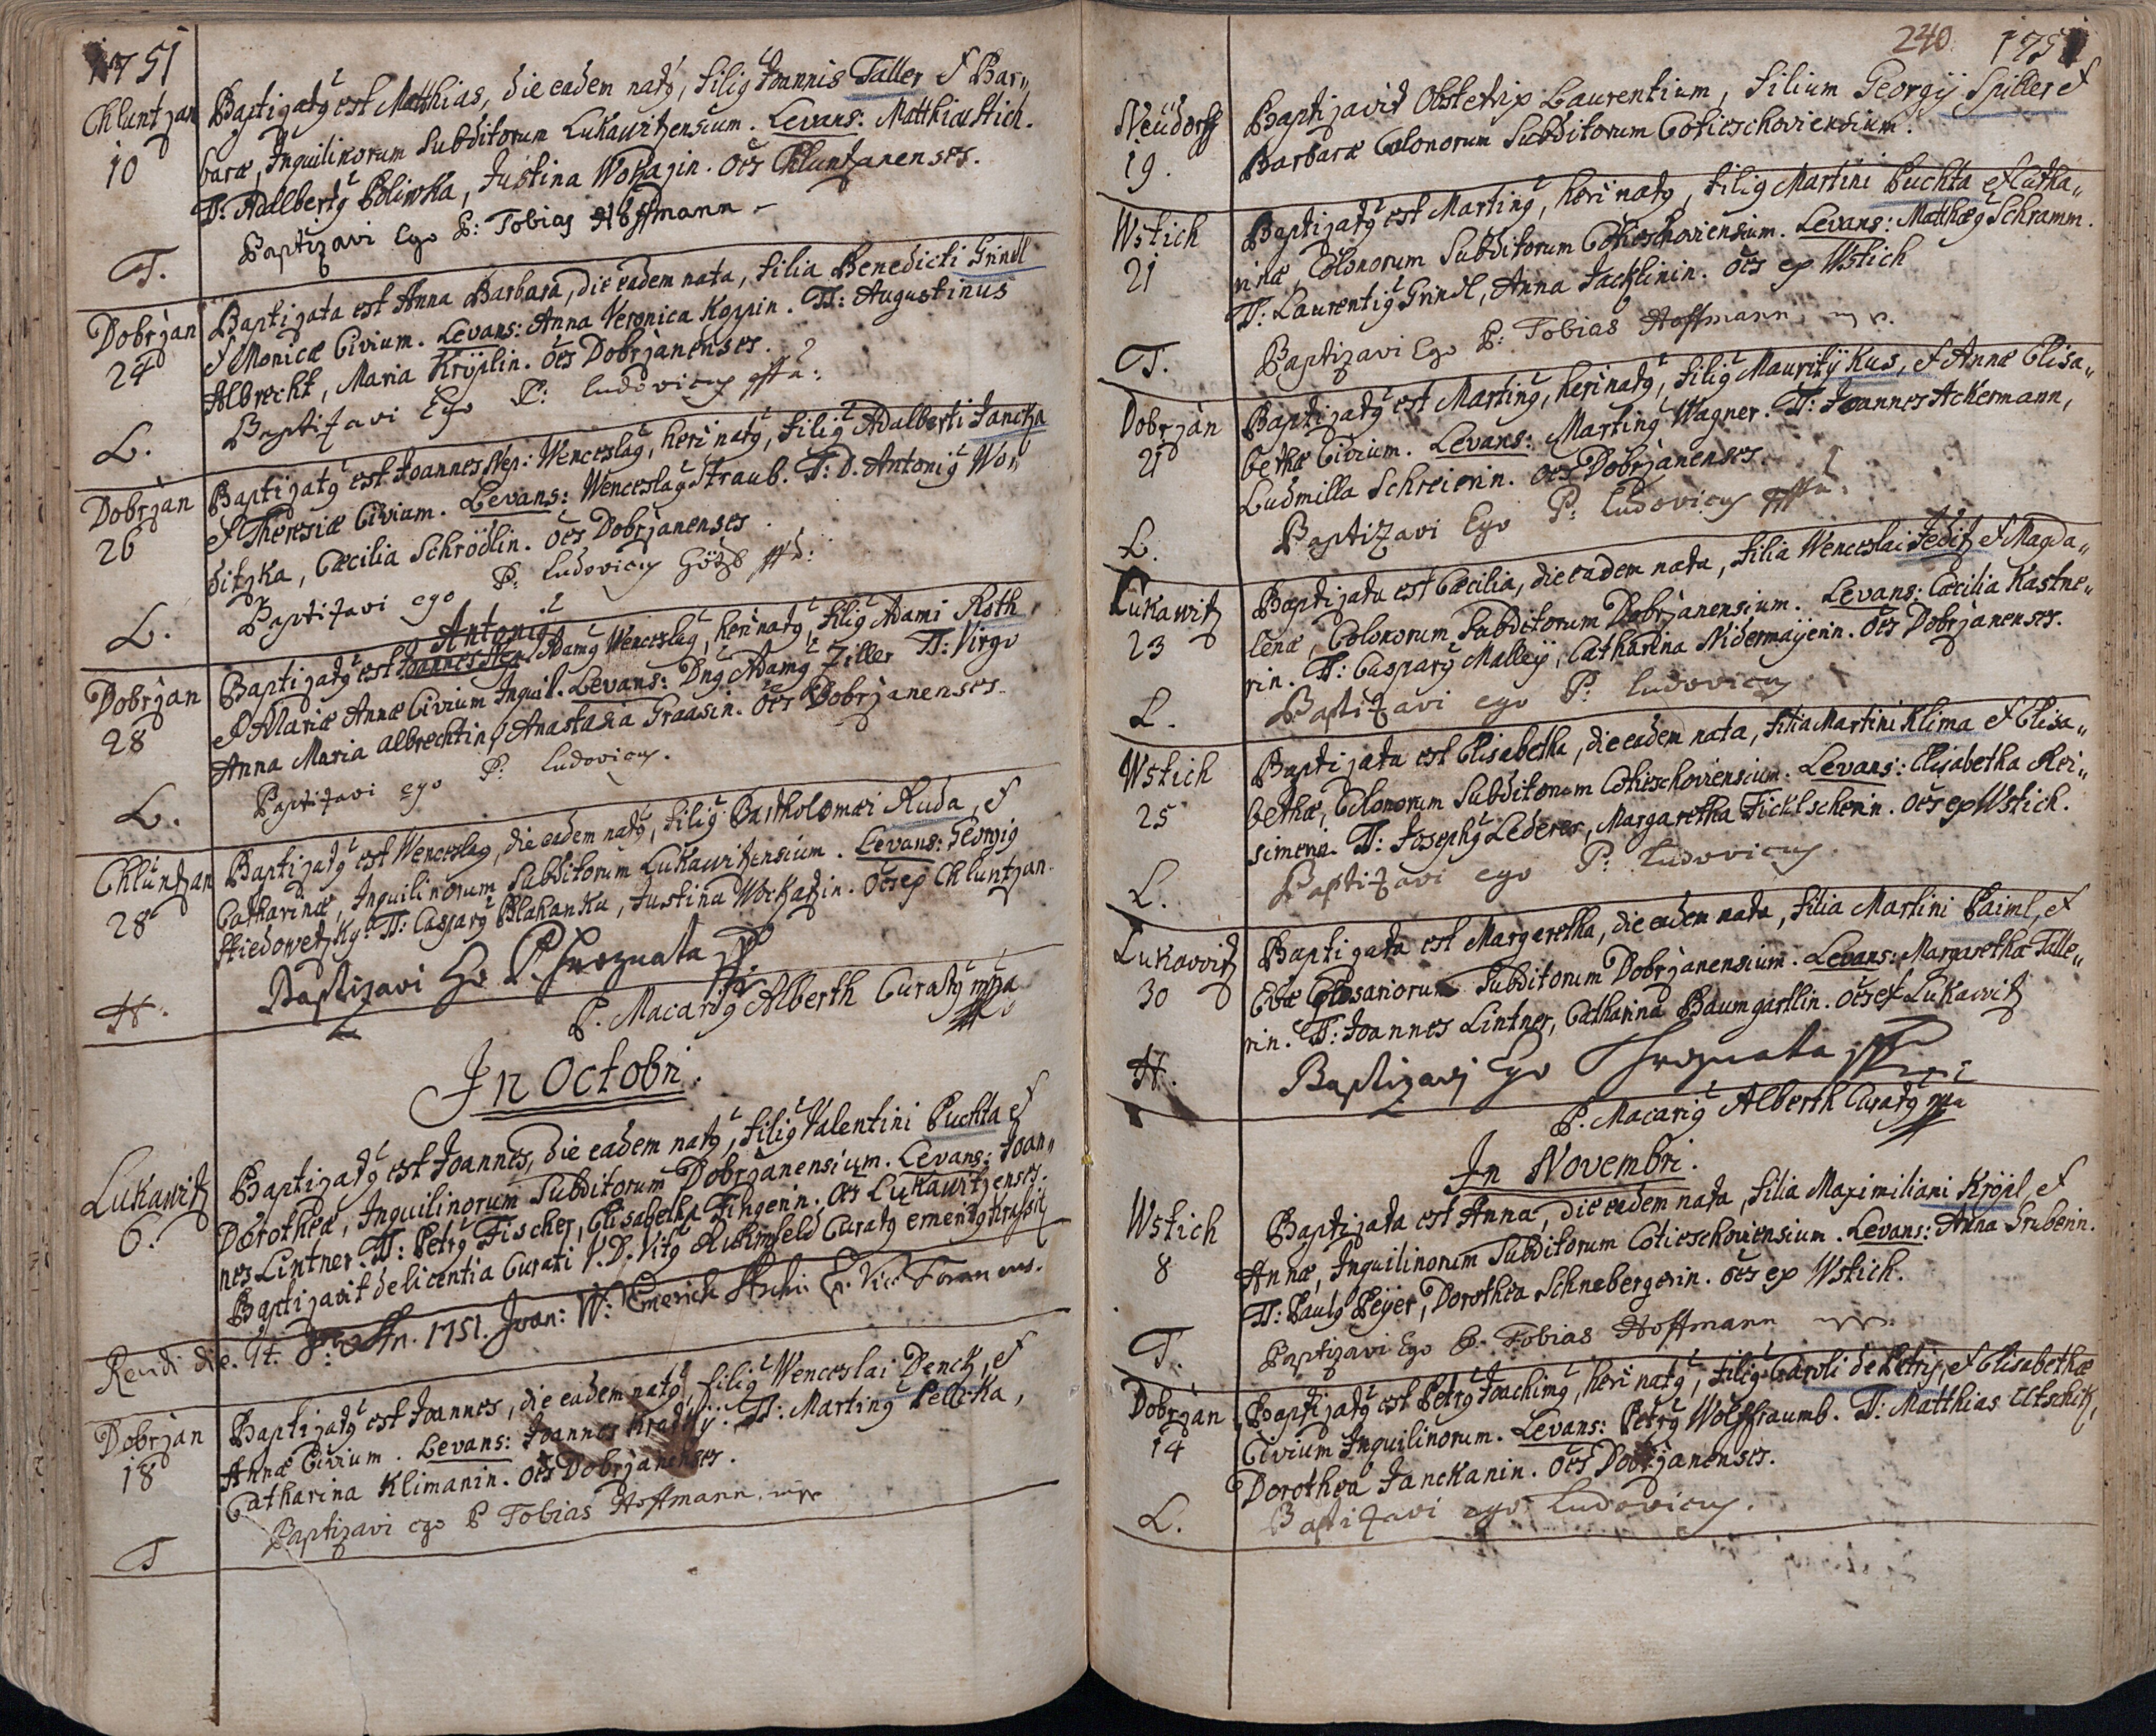 1751
Chluntzan
10
Baptizatꝰ est Matthias, die eadem natꝰ, filiꝰ Joannis Taller et Bar„
baræ, Inquilinorum Subditorum Lukawitzensium. Levans: Matthias Stich.
T: Adalbertꝰ Bliwka, Justina Wokazin. oēs Chluntzanenses.
Baptizavi Ego P: Tobias Hoffmann
T.
Dobrzan
24
Baptizata est Anna Barbara, die eadem nata, filia Benedicti Grindl
et Monicæ Civium. Levans: Anna Veronica Koppin. TT: Augustinus
Albrecht, Maria Kröplin. oēs Dobrzanenses.
Baptizavi Ego P: Ludovicus
L.
Dobrzan
26
Baptizatꝰ est Joannes Nep: Wenceslaꝰ, heri natꝰ, filiꝰ Adalberti Jancka
et Theresiæ Civium. Levans: Wenceslaꝰ Straub. T: D. Antoniꝰ Wo„
ditzka, Cæcilia Schrödlin. oēs Dobrzanenses.
Baptizavi ego P: Ludovicus Götzl
L.
Dobrzan
28
Antoniꝰ
Baptizatꝰ est Joannes Nep: Adamꝰ Wenceslaꝰ, heri natꝰ, filiꝰ Adami Roth
et Mariæ Annæ Civium Inquil. Levans: Dnꝰ Adamꝰ Ziller TT: Virgo
Anna Maria Albrechtin, Anastasia Graasin. oēs Dobrzanenses.
Baptizavi ego P: Ludovicus.
L.
Chluntzan
28
Baptizatꝰ est Wenceslaꝰ, die eadem natꝰ, filiꝰ Bartholomæi Ruda, et
Catharinæ, Inquilinorum Subditorum Lukawitzensium. Levans: Georgiꝰ
TT: Casparꝰ Blahanka, Justina Wokatzin. oēs ex Chluntzan.
Baptizavi Ego P.
H.
P. Macariꝰ Alberth Curatꝰ mpa
In Octobri.
Lukawitz
6.
Baptizatꝰ est Joannes, die eadem natꝰ, filiꝰ Valentini Puchta et
Dorotheæ, Inquilinorum Subditorum Dobrzanensium. Levans: Joan„
nes Lintner. TT: Petrꝰ Fischer, Elisabetha Fingerin. oēs Lukawitzenses.
Baptizavit de licentia Curati P.D. Vitꝰ Curatꝰ emeritꝰ
1751. Joan: W: Emerich
Dobrzan
18
Baptizatꝰ est Joannes, die eadem natꝰ, filiꝰ Wenceslai Denck, et
Annæ Civium. Levans: Joannes Kradky. TT: Martinꝰ Pelleka,
Catharina Klimanin. oēs Dobrzanenses.
Baptizavi ego P Tobias Hoffmann mpr
T
240. 175
Neüdorff
19.
Baptizavit Obstetrix Laurentium, filium Georgij Spiller et
Barbaræ Colonorum Subditorum Cotieschoviensium.
Wstich
21
Baptizatꝰ est Martinꝰ, heri natꝰ, filiꝰ Martini Puchta et Catha„
rinæ, Colonorum Subditorum Cotieschoviensium. Levans: Matthæꝰ Schramm.
TT: Laurentiꝰ Grindl, Anna Jacklinin. oēs ex Wstich
Baptizavi Ego P: Tobias Hoffmann, mpr.
T.
Dobrzan
21
Baptizatꝰ est Martinꝰ, heri natꝰ, filiꝰ Mauritij Kus, et Annæ Elisa„
bethæ Civium. Levans: Martinꝰ Wagner. TT: Joannes Ackermann,
Ludmilla Schreierin. oēs Dobrzanenses.
Baptizavi Ego P: Ludovicus
L.
Lukawitz
23
Baptizata est Cæcilia, die eadem nata, filia Wenceslai Feditz et Magda„
lenæ, Colonorum Subditorum Dobrzanensium. Levans: Cæcilia Kastne„
rin. TT: Casparꝰ Malleij, Catharina Nidermaÿerin. oēs Dobrzanenses.
Baptizavi ego P: Ludovicus
L.
Wstich
25
Baptizata est Elisabetha, die eadem nata, filia Martini Klima et Elisa„
bethæ, Colonorum Subditorum Cotieschoviensium. Levans: Elisabetha Rei„
simerin. TT: Josephꝰ Lederer, Margaretha Ficklscherin. oēs ex Wstich.
Baptizavi ego P: Ludovicus
L.
Lukawitz
30
Baptizata est Margaretha, die eadem nata, filia Martini Paiml, et
Evæ Casariorum Subditorum Dobrzanensium. Levans: Margaretha Talle„
rin. TT: Joannes Lintner, Catharina Baumgartlin. oēs ex Lukawitz
Baptizavi Ego
H.
P. Macariꝰ Alberth Curatꝰ mpa
In Novembri.
Wstich
8
Baptizata est Anna, die eadem nata, filia Maximiliani Kröpl, et
Annæ, Inquilinorum Subditorum Cotieschoviensium. Levans: Anna Gruberin.
TT: Paulꝰ Peÿer, Dorothea Schnebergerin. oēs ex Wstich.
Baptizavi Ego P. Tobias Hoffmann mpr.
T.
Dobrzan
14
Baptizatꝰ est Petrꝰ Joachimꝰ, heri natꝰ, filiꝰ Caroli de Petrij, et Elisabethæ
Civium Inquilinorum. Levans: Petrꝰ Wolffraumb. TT: Matthias Utschick,
Dorothea Janckanin. oēs Dobrzanenses.
Baptizavi ego Ludovicus.
L.